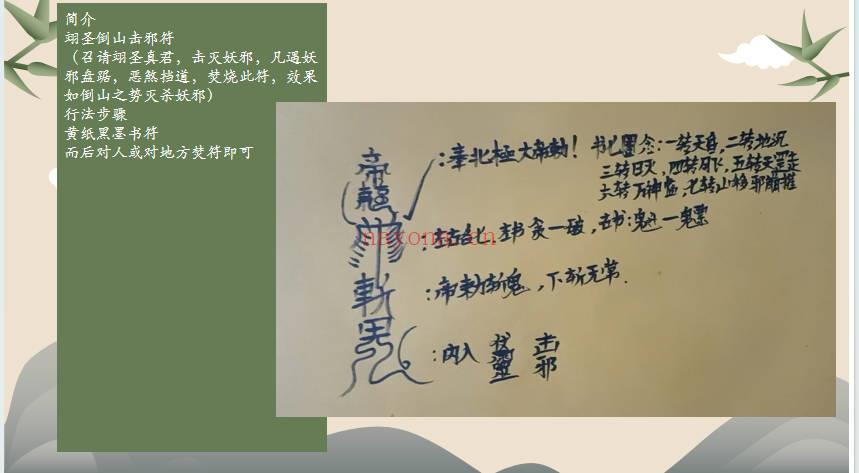 简介
翊圣倒山击邪符
（召请翊圣真君，击灭妖邪，凡遇妖
邪盘踞，恶煞挡道，焚烧此符，效果
如倒山之势灭杀妖邪）
行法步骤
黄纸黑墨书符
而后对人或对地方焚符即可
：奉北極大帝勅！书此罡念：一转天昏，二转地沉
三转日火，四转月飞，五转天罡走
六转万神惊，七转山移邪崩摧
左书贪一破，右书：魁一魒
：帝勅斩鬼，下斩无常．
：内入 翊聖 击邪
帝
斩